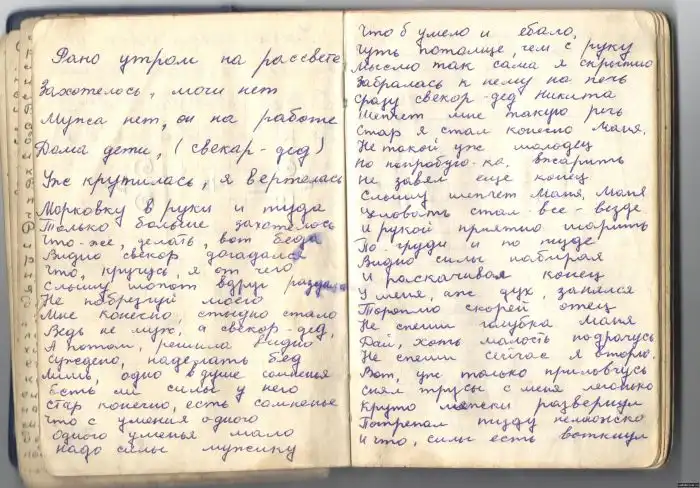 Рано утром на рассвете
Захотелось, мочи нет
Мужа нет, он на работе
Дома дети, (свекар-дед)
Уже крутилась, я вертелась
Морковку в руки и туда
Только больше захотелось
Что-же, делать, вот беда
Видно свекор догадался
Что, кручусь, я от чего
Слышу шопот вдруг раздался
Не побрезгуй моего
Мне конечно, стыдно стало
Ведь не муж, а свекор-дед,
А потом, решила видно
Суждено, наделать бед
Лишь, одно в душе сомненье
Есть ли силы у него
Стар конечно, есть сомненье
Что с умения одного
Одного уменья мало
Надо силы мужику
Что б умело и ебало,
Чуть потолще, чем с руку
Мыслю так сама я скрытно
Забралась к нему на печь
Сразу свекор-дед Никита
Шепчет мне такую речь
Стар я стал конечно Маня,
Не такой уж молодец
Но попробую-ка, вжарить
Не завял еще конец
Слышу шепчет Маня, Маня
Целовать стал все-везде
И рукой приятно шарить
По-груди и по пузде
Видно силы набирая
И раскачивая конец
У меня, аж дух, занялся
Тороплю скорей отец
Не спеши голубка Маня
Дай, хоть малость подрочусь
Не спеши сейчас я вторю.
Вот, уж только приловчусь
Снял трусы с меня легонько
Круто ляжки развернул
Потрепал пузду немножко
И что, силы есть воткнул